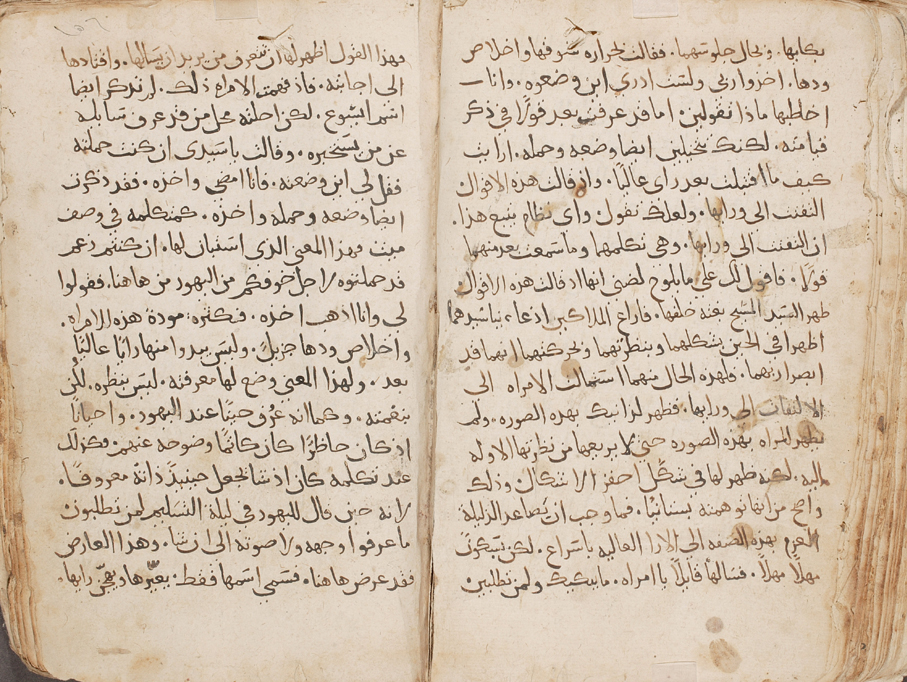 بكابها. وبحال جلوسهما. فقالت لحراره شوقها واخلاص
ودها. اخذوا ربي ولست ادري اين وضعوه. وانا
اخاطبها ماذا تقولين. اما قد عرفتِ بعد قولًا في ذكر
قيامته. لكنك تتخيلين ايضا وضعه وحمله. ارايت
كيف ما اقتبلت بعد راى عاليًا. واذ قالت هذه الاقوال
التفتت الى ورايها. ولعلك تقول واى نظام يتبع هذا.
ان التفتت الى ورايها. وهي تكلمهما وما سمعت بعد منهما
قولًا. فاقول لك على ما يلوح لضني انها اذ قالت هذه الاقوال
ظهر السيد المسيح بغته خلفها. فاراع الملاكين اذ عاينا سيدهما
اظهرا في الحين بشكلهما وبنظرتهما وبحركتهما انهما قد
ابصرا ربهما. فلهذه الحال منهما استمالت الامراه الى
الالتفات الى ورايها. فظهر لذانيك بهذه الصوره. ولم
يظهر للمراه بهذه الصوره حتى لا يريعها من نظرتها الاوله
اليه. لكنه ظهر لها في شكل احقر الاشكال وذلك
واضح من انها توهمته بستانيًا. فما وجب ان يُصاعد الذليلة
العزم بهذه الصفه الى الارا العاليه باسراع. لكن بسكون
مهلًا مهلًا. فسالها قايلًا يا امراه. ما يبكيك ولمن تطلبين
وبهذا القول اظهر لها ان يتعرف من يريد ان يسالها. واقتادها
الى اجابته. فاذ فهمت الامراه ذلك. لم تذكر ايضا
اسم ايسوع. لكن احلته محل من قد عرف سايله
عن من يستخبره. وقالت يا سيدى ان كنت حملته
فقل لي اين وضعته. فانا امضي واخذه. فقد ذكرت
ايضا وضعه وحمله واخذه. كمتكلمه في وصف
ميت فهذا المعنى الذى استبان لها. ان كنتم
قد حملتوه لاجل خوفكم من اليهود من هاهنا. فقولوا
لى وانا اذهب اخذه. فكثره مودة هذه الامراه.
واخلاص ودها جزيل. وليس يبدوا منها رايًا عاليًا
بعد. ولهذا المعنى وضع لها معرفته. ليس بنظره. لكن
بنغمته. وكما انه عُرِف حينًا عند اليهود. واحيانًا
اذ كان حاظرًا كان كاتمًا وضوحه عنهم. فكذلك
عند تكلمه كان اذ شا يجعل حينيذٍ ذاته معروفًا.
لانه حين قال لليهود في ليلة التسليم لمن تطلبون
ما عرفوا وجهه ولا صوته الى ان شا. وهذا العارض
فقد عرض هاهنا. فسمى اسمها فقط. يعيّرها ويهجّن رايها.